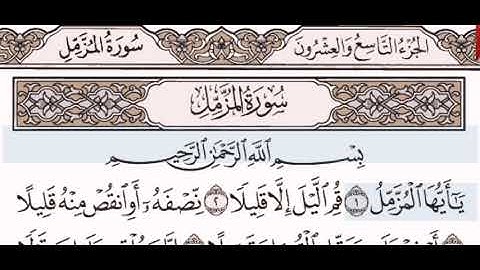 الجزء التاسع والعشرون سورة المزمل
سورة المزمل
بِسْمِ ٱللَّهِ ٱلرَّحْمَٰنِ ٱلرَّحِيمِ
يَٰٓأَيُّهَا ٱلْمُزَّمِّلُ ١ قُمِ ٱلَّيْلَ إِلَّا قَلِيلًا ٢ نِّصْفَهُۥٓ أَوِ ٱنقُصْ مِنْهُ قَلِيلًا